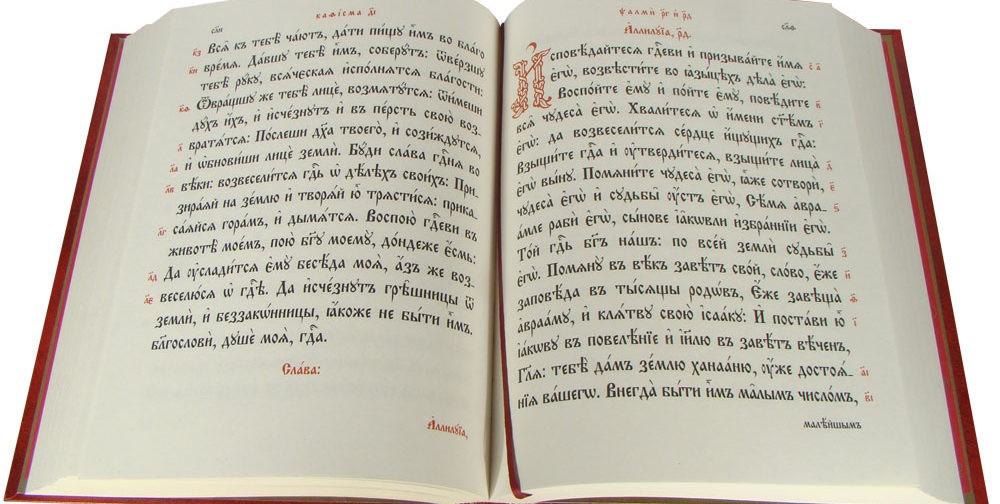 каѳі́сма д҃і
с҃ли
Всѧ̑ къ тебѣ̀ ча́ютъ, да́ти пи́щꙋ и҆̀мъ во бл҃го
вре́мѧ. Да́вшꙋ тебѣ̀ и҆̀мъ, соберꙋ́тъ: ѿве́рзшꙋ
тебѣ̀ рꙋ́кꙋ, всѧ́ческаѧ и҆спо́лнѧтсѧ бла́гости:
Ѿвра́щшꙋ же тебѣ̀ лицѐ, возмѧтꙋ́тсѧ: ѿи́меши
дꙋ́хъ и҆́хъ, и҆ и҆сче́знꙋтъ и҆ въ пе́рсть свою̀ воз-
вратѧ́тсѧ: По́слеши дх҃а твоего̀, и҆ сози́ждꙋтсѧ,
и҆ ѡ҆бнови́ши лицѐ землѝ. Бꙋ́ди сла́ва гд҇нѧ во
вѣ́ки: возвесели́тсѧ гд҇ь ѡ҆ дѣ́лѣхъ свои́хъ: При-
зира́ѧй на зе́млю и҆ творѧ́й ю҆̀ трѧсти́сѧ: прика-
са́ѧйсѧ гора́мъ, и҆ дымѧ́тсѧ. Воспою̀ гд҇еви въ
животѣ̀ мое́мъ, пою̀ бг҃ꙋ моемꙋ̀, до́ндеже є҆́смь:
Да ᲂу҆слади́тсѧ є҆мꙋ̀ бесѣ́да моѧ̀, а҆́зъ же воз-
веселю́сѧ ѡ҆ гд҇ѣ. Да и҆сче́знꙋтъ грѣ̑шницы ѿ
землѝ, и҆ беззакѡ́нницы, ꙗ҆́коже не бы́ти и҆̀мъ.
бл҃гословѝ, дꙋшѐ моѧ̀, гд҇а.
Сла́ва:
А҆ллилꙋ́їа,
ѱалмѝ р҃г и҆ р҃д
А҆ллилꙋ́їа, р҃д.
И҆сповѣ́дайтесѧ гд҇еви и҆ призыва́йте и҆́мѧ
є҆гѡ̀, возвѣсти́те во ꙗ҆зы́цѣхъ дѣла̀ є҆гѡ̀:
Воспо́йте є҆мꙋ̀ и҆ по́йте є҆мꙋ̀, повѣ́дите
всѧ̑ чꙋдеса̀ є҆гѡ̀. Хвали́тесѧ ѡ҆ и҆́мени ст҃ѣмъ
є҆гѡ̀: да возвесели́тсѧ се́рдце и҆́щꙋщихъ гд҇а:
Взыщи́те гд҇а и҆ ᲂу҆тверди́тесѧ, взыщи́те лица̀
є҆гѡ̀ вы́нꙋ. Помѧни́те чꙋдеса̀ є҆гѡ̀, ꙗ҆̀же сотворѝ,
чꙋдеса̀ є҆гѡ̀ и҆ сꙋдьбы̑ ᲂу҆́стъ є҆гѡ̀, Сѣ́мѧ а҆вра-
а́мле рабѝ є҆гѡ̀, сы́нове і҆а́кѡвли и҆збра́ннїи є҆гѡ̀.
То́й гд҇ь бг҃ъ на́шъ: по все́й землѝ сꙋдьбы̑
є҆гѡ̀. Помѧнꙋ̀ въ вѣ́къ завѣ́тъ сво́й, сло́во, є҆́же
заповѣ́да въ ты́сѧщы родѡ́въ, Є҆́же завѣща̀
а҆враа́мꙋ, и҆ клѧ́твꙋ свою̀ і҆саа́кꙋ: И҆ поста́ви ю҆̀
і҆а́кѡвꙋ въ повелѣ́нїе и҆ і҆и҃лю въ завѣ́тъ вѣ́ченъ,
Гл҃ѧ: тебѣ̀ да́мъ зе́млю ханаа́ню, ᲂу҆́же достоѧ́-
нїѧ ва́шегѡ. Внегда̀ бы́ти и҆̀мъ ма̑лымъ число́мъ,
малѣ́йшымъ